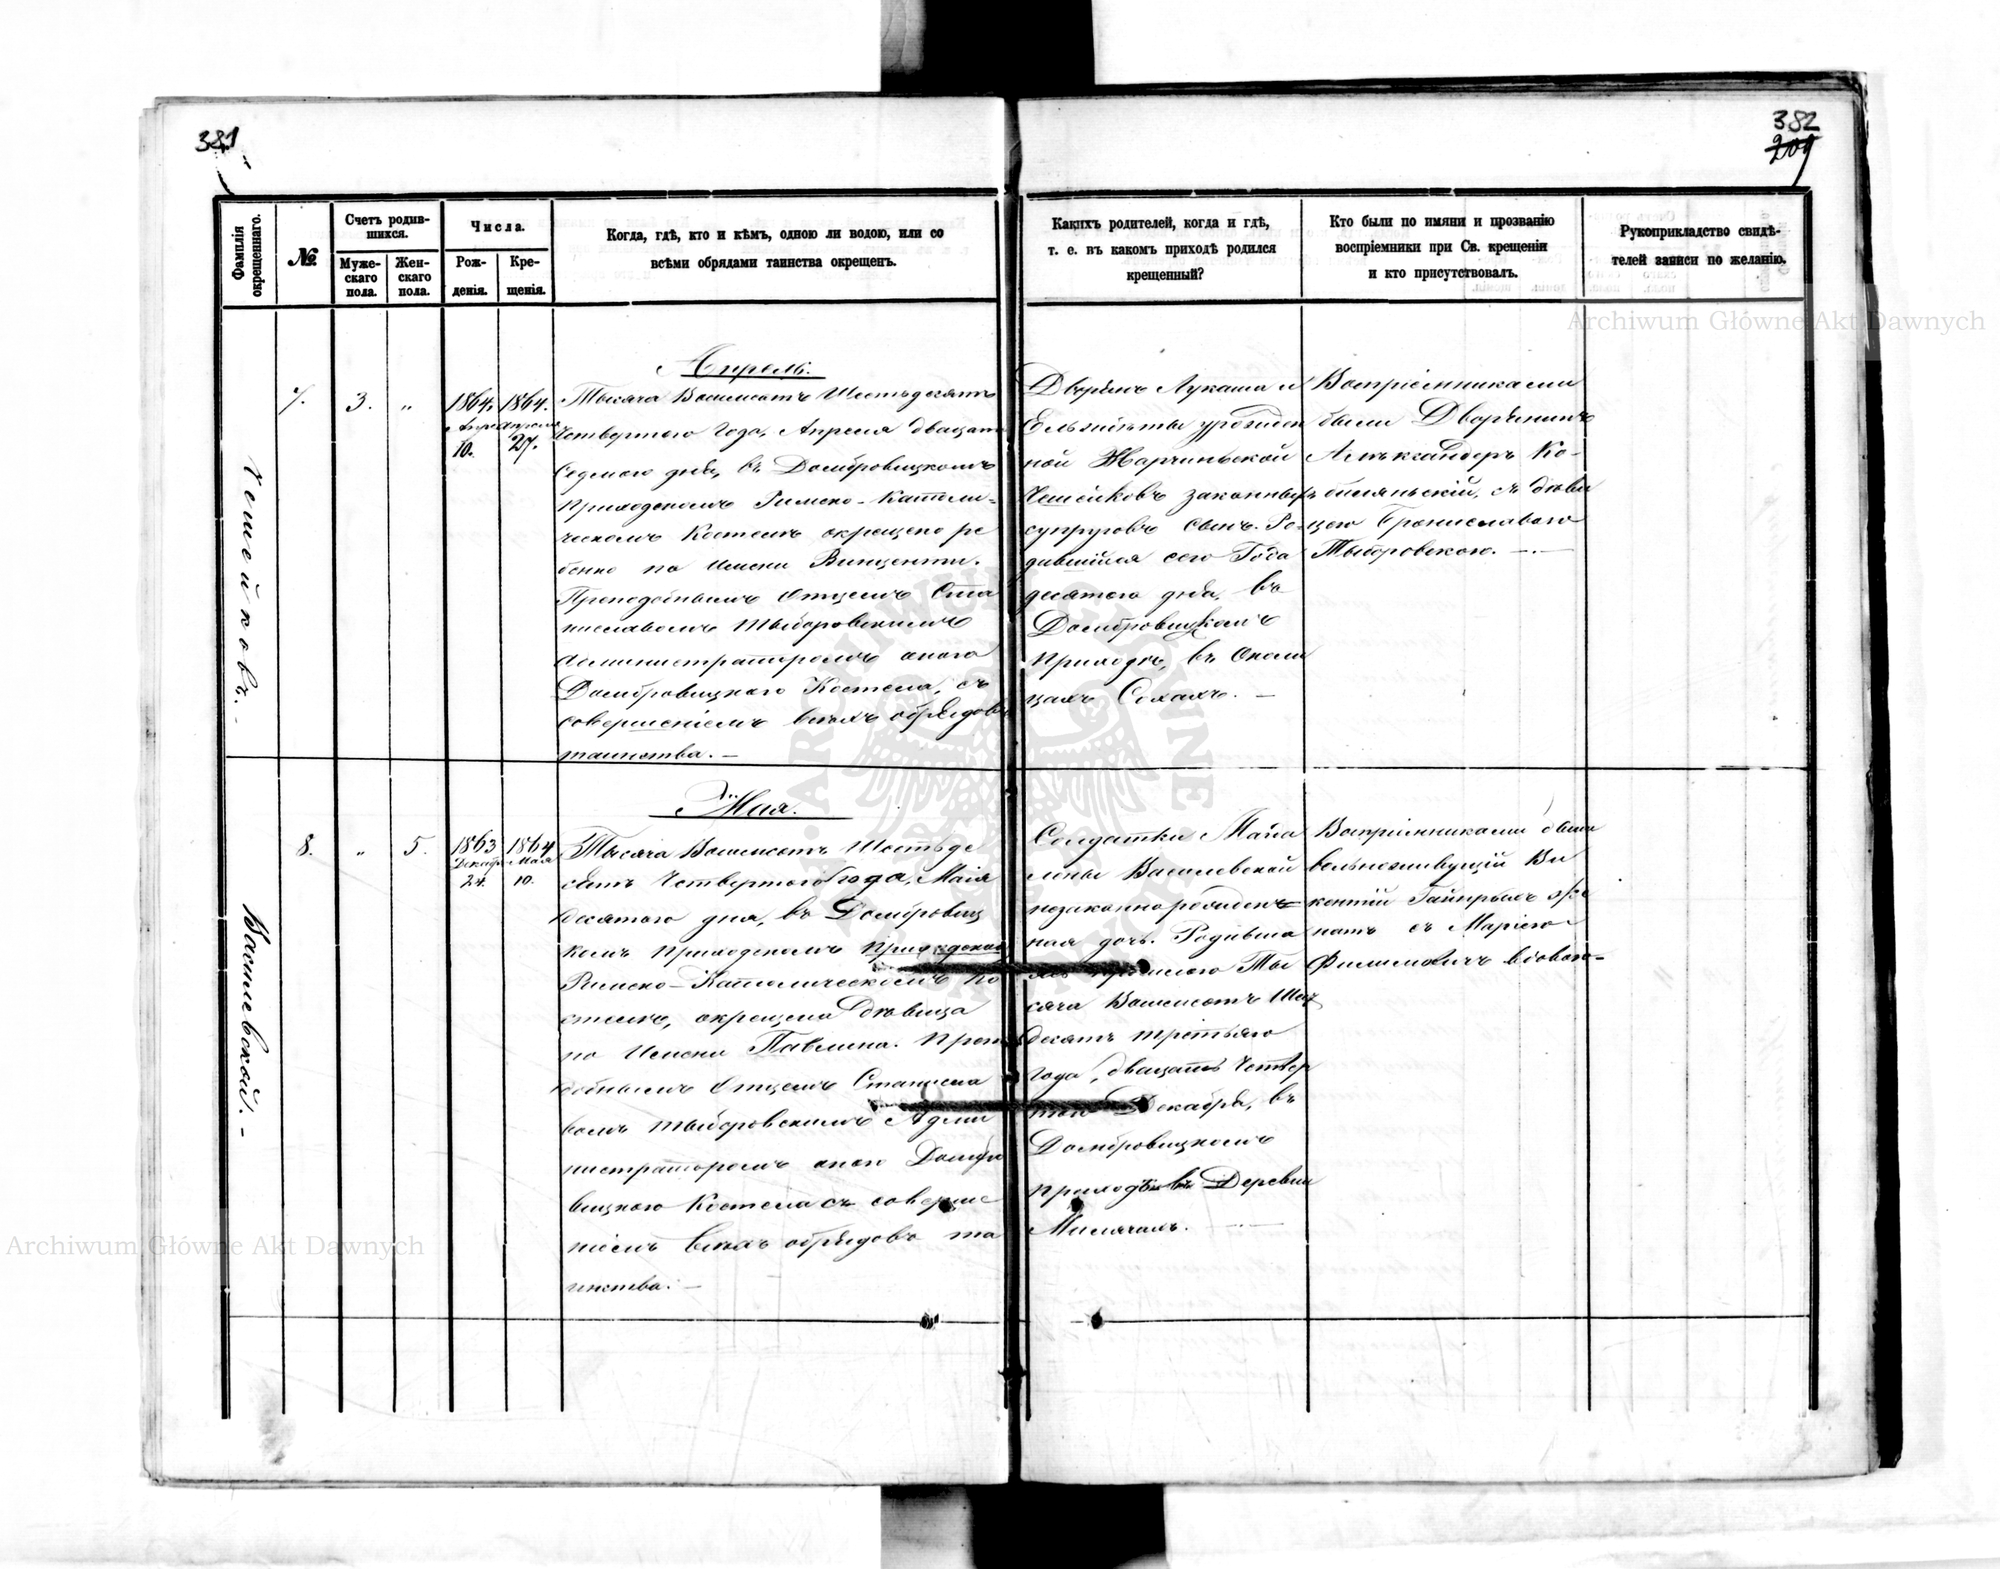 381
382
209
Фамилія окрещеннаго.
№
Счетъ родив-
шихся.
Муже-
скаго
пола.
Жен-
скаго
пола.
Числа.
Рож-
денія.
Кре-
щенія.
Когда, гдѣ, кто и кѣмъ, одною ли водою, или со
всѣми обрядами таинства окрещенъ.
Какихъ родителей, когда и гдѣ,
т. е. въ какомъ приходѣ родился
крещенный?
Кто были по имяни и прозванію
воспріемники при Св. крещеніи
и кто присутствовалъ.
Рукоприкладство свидѣ-
телей записи по желанію.
Archiwum Główne Akt Dawnych
Чешейковъ. -
7.
3.
„
1864.
10.
1864.
Апреля
27.
Апрель.
Тысяча Восемсотъ Шестьдесятъ
Четвертого Года, Апреля двацать
Седмого дня, въ Домбровицкомъ
Приходскомъ Римско-Католи-
ческомъ Костелѣ окрещено ре
бенко по Имени Винценти.
Преподобнымъ Отцемъ Ста
ниславомъ Тыборовскимъ
Администраторомъ оного
Домбровицкого Костела, съ
совершеніемъ всехъ обрядовъ
таинства. —
Дворянъ Лукаша и
Ельжбѣты урожден
ной Жарчиньской
Чешейковъ законныхъ
супруговъ сынъ. Ро-
дившійся сего Года
десятого дня, въ
Домбровицкомъ
приходѣ, въ Околи
цахъ Сехахъ. —
Воспріемниками
были Дворянинъ
Алѣксандеръ Ко-
быляньскій, съ дѣви
цею Брониславаго
Тыборовскою. —.—
Василевской. -
8.
„
5.
1863
Декабр
24.
1864
Мая
10.
Май.
Тысяча Восемсотъ Шестьде
сятъ Четвертого Года, Маія
десятого дня, въ Домбровиц
комъ Приходскомъ Приходском
Римско-Католическомъ Ко
стелѣ, окрещена Дѣвица
по Имени Павлина. Препо
добнымъ Отцемъ Станисла
вомъ Тыборовскимъ Адми
нистраторомъ оного Домбро
вицкого Костела съ соверше
ніемъ всехъ обрядовъ та
инства. —
Солдатки Мага
лены Василевской
незаконнорожден=
ная дочь. Родивша
яся прошлого Ты
сяча Восемсотъ Шез
десятъ третьяго
года, двацать Четвер
того Декабря, въ
Домбровицкомъ
приходѣ въ Деревни
Милячахъ. —
Воспріемниками были
вольноживущій Ви
кентій
натъ съ Маріею
Филиповичъ вдовою=
Archiwum Główne Akt Dawnych
ARCHIWUM GŁÓWNE AKT DAWNYCH